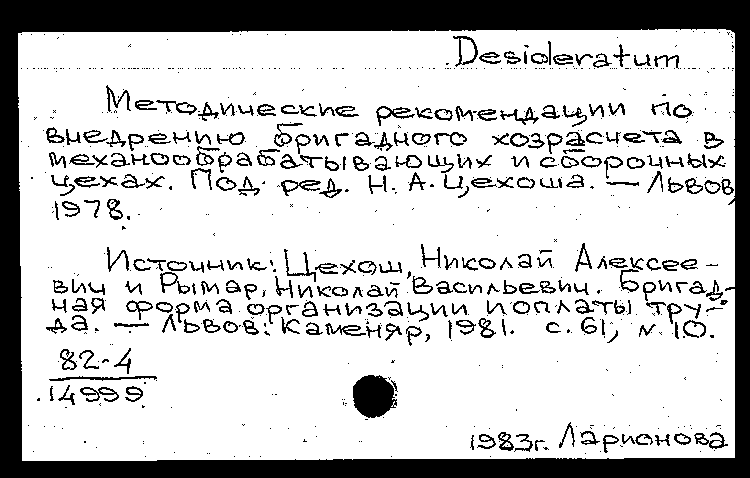 Desideratum
Методические рекомендации по
внедрению бригадного хозрасчета в
механообрабатывающих и сборочных
цехах. Под ред. Н. А. Цехоша. — Львов,
1978.
Источник: Цехош, Николай Алексее-
вич и Рымар, Николай Васильевич. Бригад-
ная форма организации и оплаты тру-
да. — Львов: Каменяр, 1981. с. 61, N. 10.
82-4
14999
1983г. Ларионова